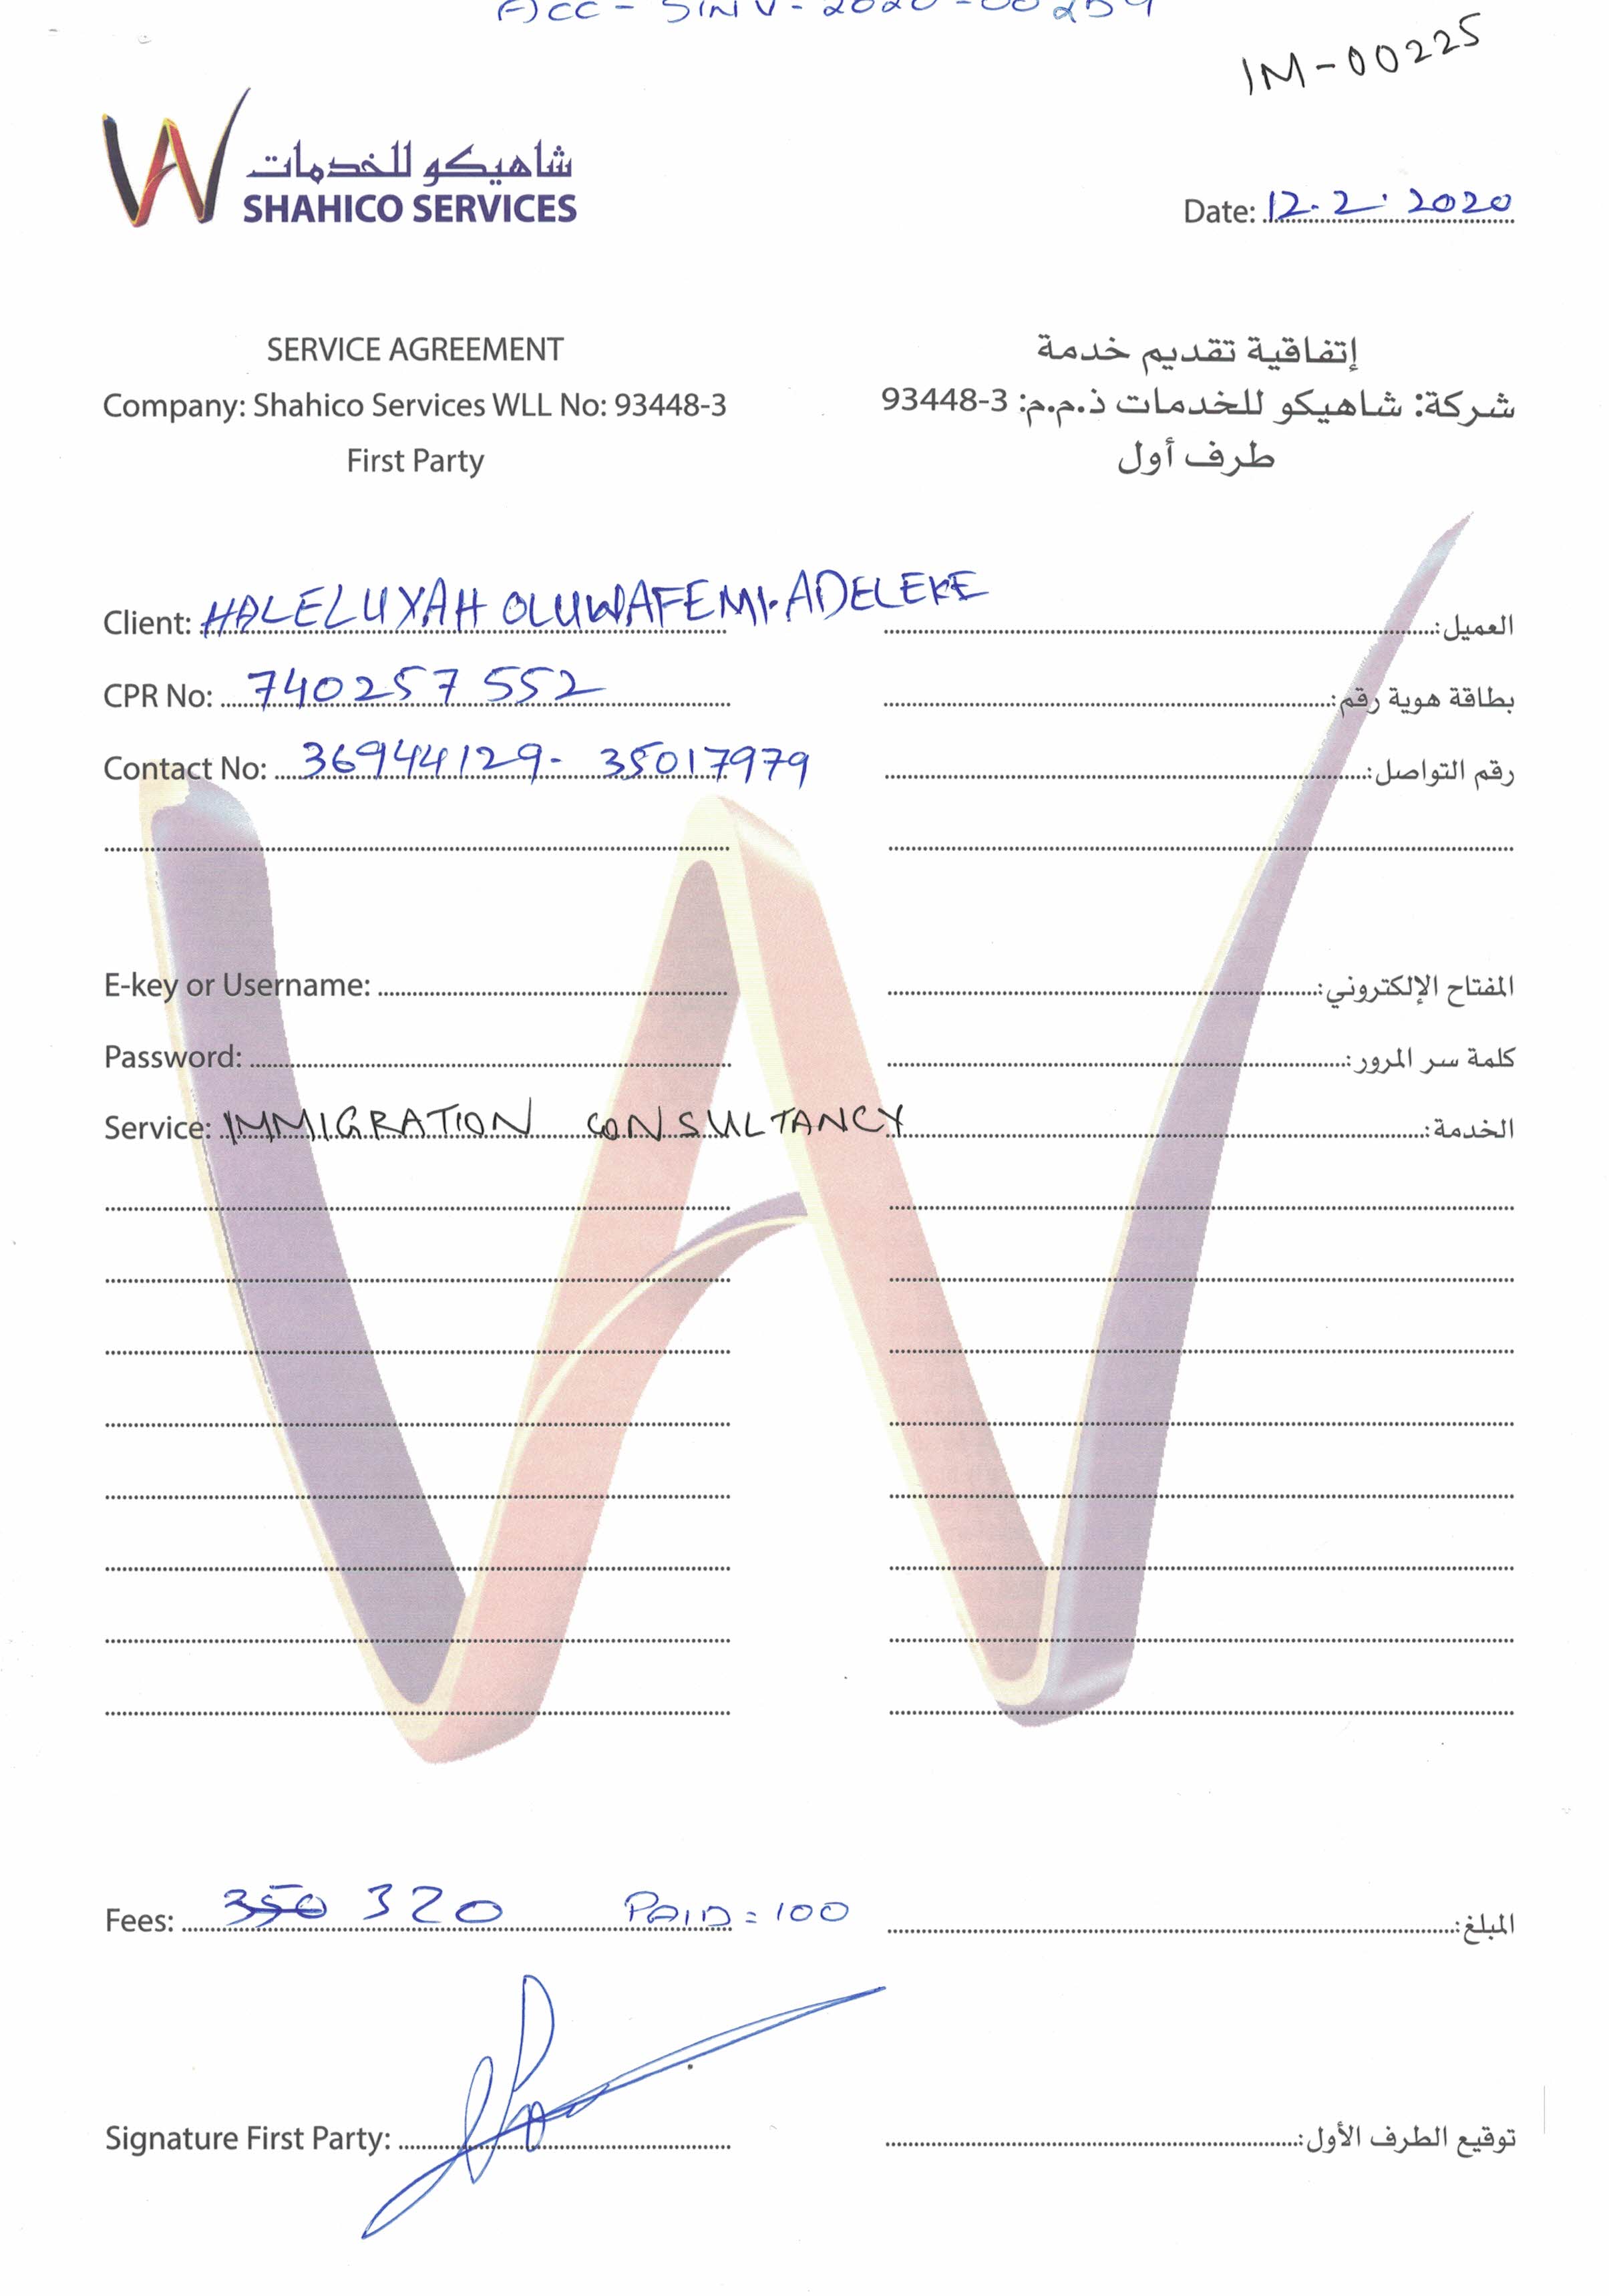 ACC - SINV - 2020 - 00259
IM-00225
شاهيكو للخدمات
SHAHICO SERVICES
Date: 12.2.2020
SERVICE AGREEMENT
إتفاقية تقديم خدمة
Company: Shahico Services WLL No: 93448-3
شركة: شاهيكو للخدمات ذ.م.م: 3-93448
First Party
طرف أول
Client: HALELUYAH OLUWAFEMI ADELEKE
العميل:
CPR No: 740257552
بطاقة هوية رقم:
Contact No: 36944129- 35017979
رقم التواصل:
E-key or Username:
المفتاح الإلكتروني:
Password:
كلمة سر المرور:
Service: IMMIGRATION CONSULTANCY
الخدمة:
Fees: 350 320 PAID = 100
المبلغ:
Signature First Party:
توقيع الطرف الأول: